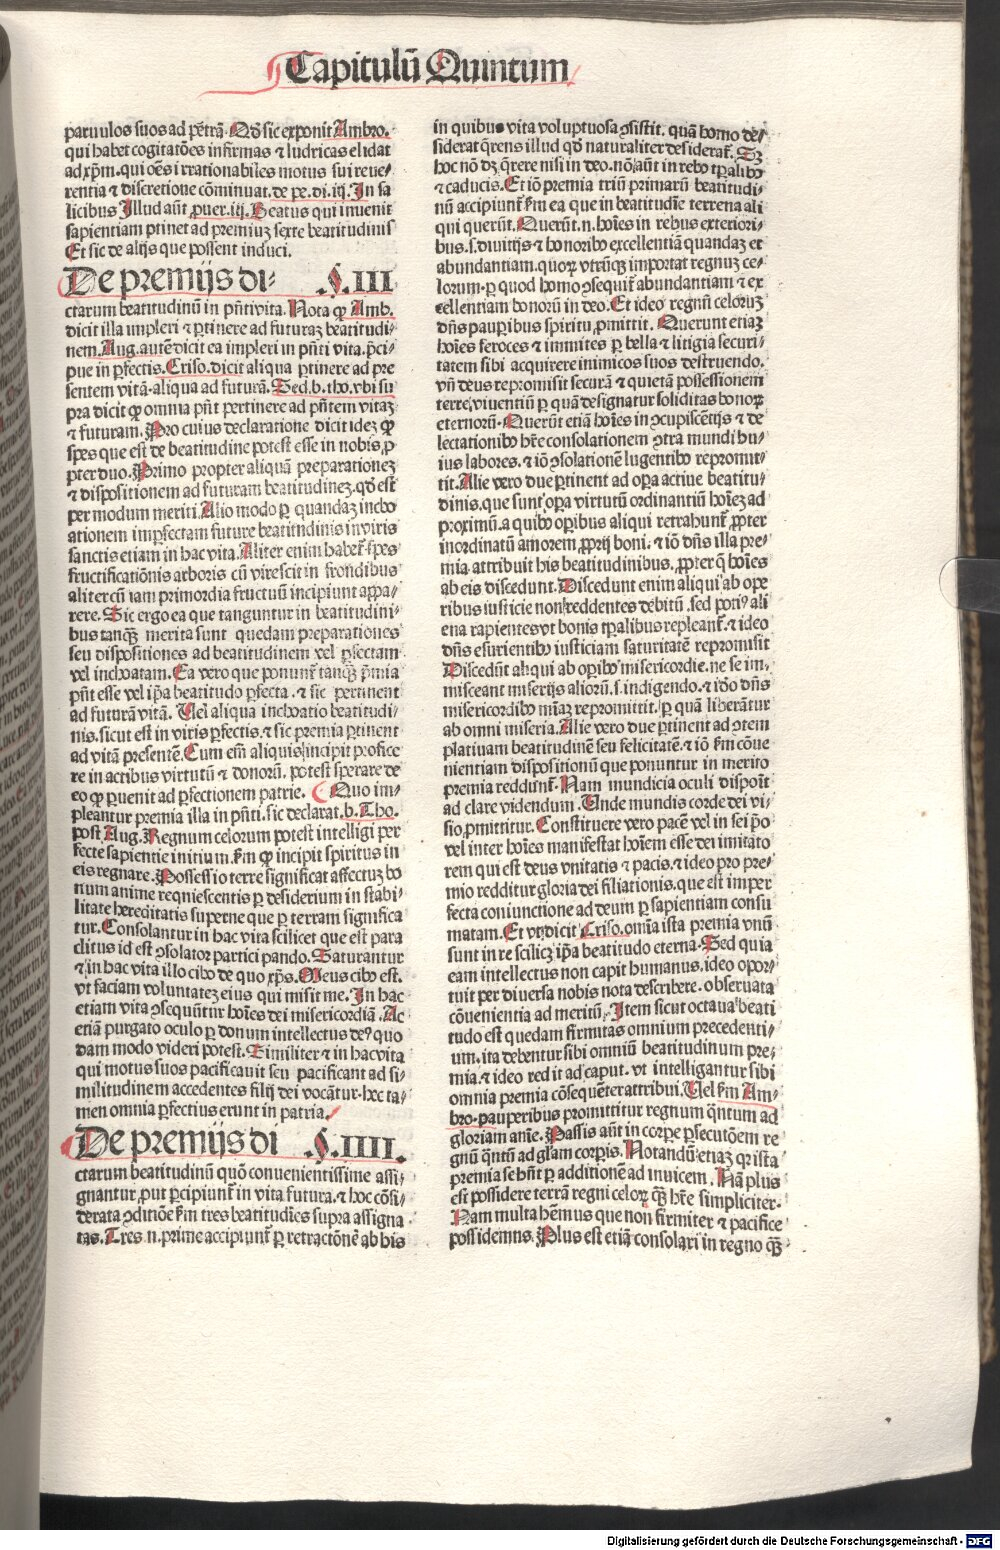 Capitulū Quintum
paruulos suos ad pētrā. Qd̄ sic exponit Ambro.
qui habet cogitatōes infirmas ⁊ ludricas elidat
ad xp̄m. qui oēs irrationabiles motus sui reue⸗
rentia ⁊ discretione cōminuat. de pe. di. iij. In sa
licibus Illud aūt puer. iij. Beatus qui inuenit
sapientiam ptinet ad premiuz sexte beatitudinis
Et sic de alijs que possent induci.
De premijs di⸗ §. III
ctarum beatitudinū in pn̄ti vita. Nota ꝙ Amb.
dicit illa impleri ⁊ ꝑtinere ad futuraz beatitudi⸗
nem. Aug. autē dicit ea impleri in pn̄ti vita. p̄ci⸗
pue in ꝑfectis. Criso. dicit aliqua ꝑtinere ad pre
sentem vitā. aliqua ad futurā. Sed. b. tho. vbi su
pra dicit ꝙ omnia pn̄t pertinere ad pn̄tem vitaz
⁊ futuram. Pro cuius declaratione dicit idez ꝙ
spes que est de beatitudine potest esse in nobis ꝓ
pter duo. Primo propter aliquā preparationez
⁊ dispositionem ad futuram beatitudinez. qd̄ est
per modum meriti. Alio modo ꝑ quandaz incho
ationem imꝑfectam future beatitudinis in viris
sanctis etiam in hac vita. Aliter enim habet᷑ spes
fructificatiōnis arboris cū virescit in frondibus
aliter cū iam primordia fructuū incipiunt appa⸗
rere. Sic ergo ea que tanguntur in beatitudini⸗
bus tanqꝫ merita sunt quedam preparationes
seu dispositiones ad beatitudinem vel ꝑfectam
vel inchoatam. Ea vero que ponunt᷑ tanqꝫ p̄mia
pn̄t esse vel ip̄a beatitudo ꝑfecta. ⁊ sic pertinent
ad futurā vitā. Uel aliqua inchoatio beatitudi⸗
nis. sicut est in viris ꝑfectis. ⁊ sic premia ꝑtinent
ad vitā presentē. Cum em̄ aliquis incipit ꝓfice
re in actibus virtutū ⁊ donorū. potest sperare de
eo ꝙ ꝑuenit ad ꝑfectionem patrie. Quo im⸗
pleantur premia illa in pn̄ti. sic declarat. b. Tho.
post Aug. Regnum celorum potest intelligi per
fecte sapientie initium. s̄m ꝙ incipit spiritus in
eis regnare. Possessio terre significat affectuz bo
num anime requiescentis ꝑ desiderium in stabi⸗
litate hereditatis superne que ꝑ terram significa
tur. Consolantur in hac vita scilicet que est para
clitus id est ꝯsolator partici pando. Saturantur
⁊ in hac vita illo cibo de quo xp̄s. Meus cibo est.
vt faciam voluntatez eius qui misit me. In hac
etiam vita ꝯsequūtur hoīes dei misericordiā. Ac
etiā purgato oculo ꝑ donum intellectus deꝰ quo
dam modo videri potest. Similiter ⁊ in hac vita
qui motus suos pacificauit seu pacificant ad si⸗
militudinem accedentes filij dei vocātur. hec ta⸗
men omnia ꝑfectius erunt in patria.
De premijs di §. IIII.
ctarum beatitudinū quō conuenientissime assi⸗
gnantur prout ꝑcipiunt᷑ in vita futura. ⁊ hoc cōsi⸗
derata ꝯditiōe s̄m tres beatitudīes supra assigna
tas. Tres. n. prime accipiunt᷑ ꝑ retractōnē ab his
in quibus vita voluptuosa ꝯsistit. quā homo de⸗
siderat q̄rens illud qd̄ naturaliter desiderat᷑. Sꝫ
hoc nō dꝫ q̄rere nisi in deo. nō aūt in rebꝰ tꝑalibꝰ
⁊ caducis. Et iō premia triū primarū beatitudi⸗
nū accipiunt᷑ s̄m ea que in beatitudīe terrena ali
qui querūt. Querūt. n. hoīes in rebus exteriori⸗
bus. s. diuitijs ⁊ honoribo excellentiā quandaz et
abundantiam. quoꝝ vtrūqꝫ importat regnuz ce⸗
lorum. ꝑ quod homo ꝯsequit᷑ abundantiam ⁊ ex
cellentiam bonorū in deo. Et ideo regnū celoruz
dn̄s pauꝑibus spiritu ꝓmittit. Querunt etiaꝫ
hoīes feroces ⁊ immites ꝑ bella ⁊ litigia securi⸗
tatem sibi acquirere inimicos suos destruendo.
vn̄ deus repromisit securā ⁊ quietā possessionem
terre viuentiū ꝑ quā designatur soliditas bonoꝝ
eternorū. Querūt etiā hoīes in ꝯcupiscētijs ⁊ de
lectationibꝰ hr̄e consolationem ꝯtra mundi hu⸗
ius labores. ⁊ iō ꝯsolationē lugentibꝰ repromit⸗
tit. Alie vero due ꝑtinent ad oꝑa actiue beatitu⸗
dinis. que sunt oꝑa virtutū ordinantiū hoīez ad
proximū. a quibꝰ oꝑibus aliqui retrahunt᷑ ꝓpter
inordinatū amorem ꝓprij boni. ⁊ iō dn̄s illa pre⸗
mia attribuit his beatitudinibus. ꝓpter q̄ hoīes
ab eis discedunt. Discedunt enim aliqui ab ope
ribus iusticie non reddentes debitū. sed potiꝰ ali
ena rapientes vt bonis tꝑalibus repleant᷑. ⁊ ideo
dn̄s esurientibꝰ iusticiam saturitatē repromisit
Discedūt aliqui ab oꝑibꝰ misericordie. ne se im⸗
misceant miserijs aliorū. s. indigendo. ⁊ iō dn̄s
misericordibꝰ miaꝫ repromittit. ꝑ quā liberātur
ab omni miseria. Alie vero due ꝑtinent ad ꝯtem
platiuam beatitudinē seu felicitatē. ⁊ iō s̄m cōue
nientiam dispositionū que ponuntur in merito
premia reddunt᷑. Nam mundicia oculi disponit
ad clare videndum. Unde mundis corde dei vi⸗
sio ꝓmittitur. Constituere vero pacē vel in sei p̄o
vel inter hoīes manifestat hoīem esse dei imitato
rem qui est deus vnitatis ⁊ pacis. ⁊ ideo pro pre⸗
mio redditur gloria dei filiationis. que est in per
fecta coniunctione ad deum ꝑ sapientiam consu
matam. Et vt dicit Criso. omīa ista premia vnū
sunt in re scilicꝫ ip̄a beatitudo eterna. Sed quia
eam intellectus non capit humanus. ideo opor⸗
tuit per diuersa nobis nota describere. obseruata
cōuenientia ad meritū. Item sicut octaua beati
tudo est quedam firmitas omnium precedenti⸗
um. ita debentur sibi omniū beatitudinum pre⸗
mia. ⁊ ideo redit ad caput. vt intelligantur sibi
omnia premia cōsequēter attribui. Uel s̄m Am⸗
bro. pauperibus promittitur regnum q̄ntum ad
gloriam anīe. Passis aūt in corꝑe ꝑsecutōem re
gnū q̄ntū ad gl̄am corꝑis. Notandū etiaꝫ qꝛ ista
premia se hn̄t ꝑ additionē ad inuicem. Nā plus
est possidere terrā regni celoꝝ qꝫ hr̄e simpliciter.
Nam multa hēmus que non firmiter ⁊ pacifice
possidemus. Plus est etiā consolari in regno qꝫ
Digitalisierung gefördert durch die Deutsche Forschungsgemeinschaft - DFG